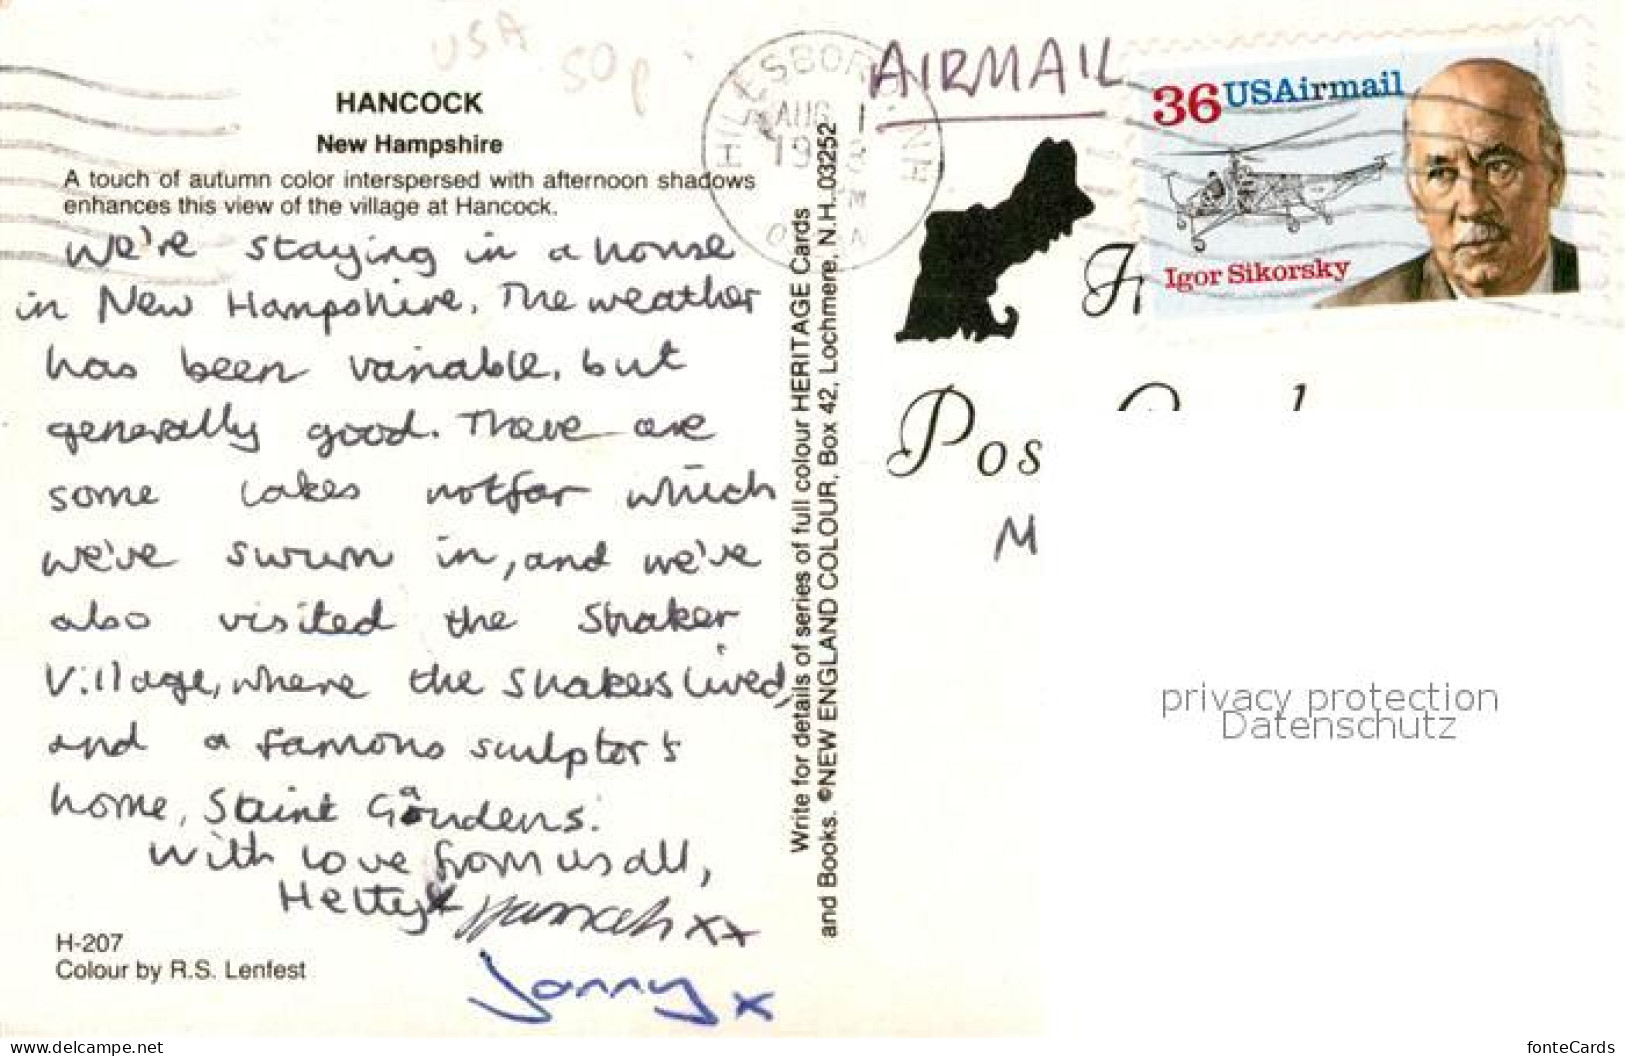 USA
50p
HANCOCK
New Hampshire
A touch of autumn color interspersed with afternoon shadows
enhances this view of the village at Hancock.
We're staying in a house
in New Hampshire. The weather
has been variable, but
generally good. There are
some lakes not far which
we've swum in, and we've
also visited the Shaker
Village, where the Shakers lived,
and a famous sculptor's
home, Saint Gaudens.
With love from us all,
Hetty x Hannah xx
Jonny x
H-207
Colour by R.S. Lenfest
Write for details of series of full colour HERITAGE Cards
and Books. ©NEW ENGLAND COLOUR, Box 42, Lochmere, N.H. 03252
HILLSBORO NH
AUG
19
AIRMAIL
36 USAirmail
Igor Sikorsky
Pos
M
privacy protection
Datenschutz
www.delcampe.net
fonteCards